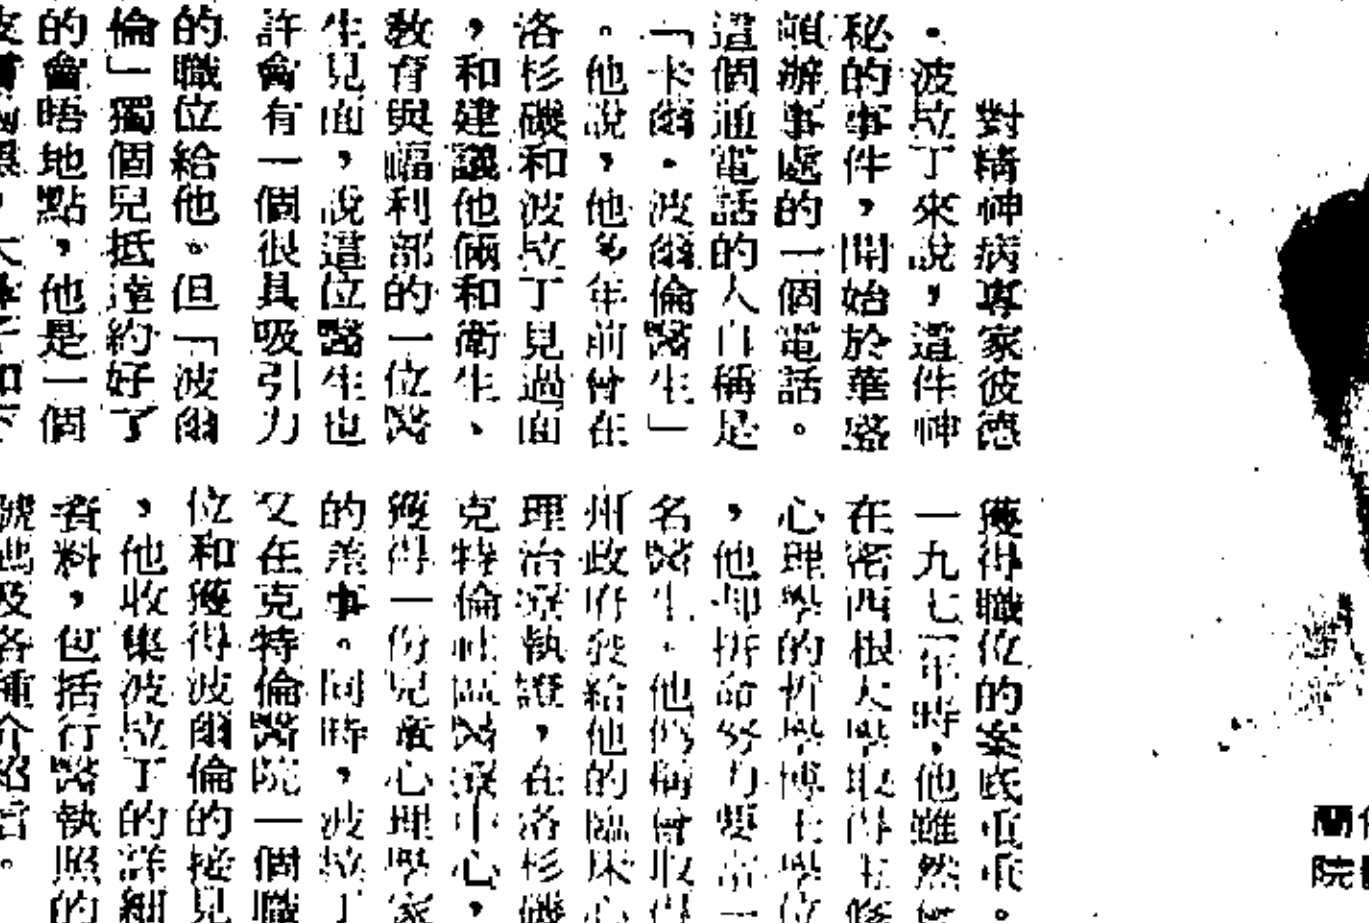 對精神病專家彼德
・波拉丁來說，這件神
秘的事件，開始於華盛
頓辦事處的一個電話。
這個通電話的人自稱是
「卡爾・波爾倫醫生」
。他說，他多年前曾在
洛杉磯和波拉丁見過面
，和建議他倆和衛生、
教育與福利部的一位醫
生見面，說這位醫生也
許會有一個很具吸引力
的職位給他。但「波爾
倫」獨個兒抵達約好了
的會晤地點，他是一個
獲得職位的案底重重。
一九七年時，他雖然
在密西根大學取得主修
心理學的哲學博士學位
，他却拼命努力要當一
名醫生。他仍稱曾取得
州政府發給他的臨床心
理治療執證，在洛杉磯
克特倫社區醫療中心，
獲得一份兒童心理學家
的差事。同時，波拉丁
又在克特倫醫院一個職
位和獲得波爾倫的接見
，他收集波拉丁的詳細
資料，包括行醫執照的
號碼及各種介紹信。